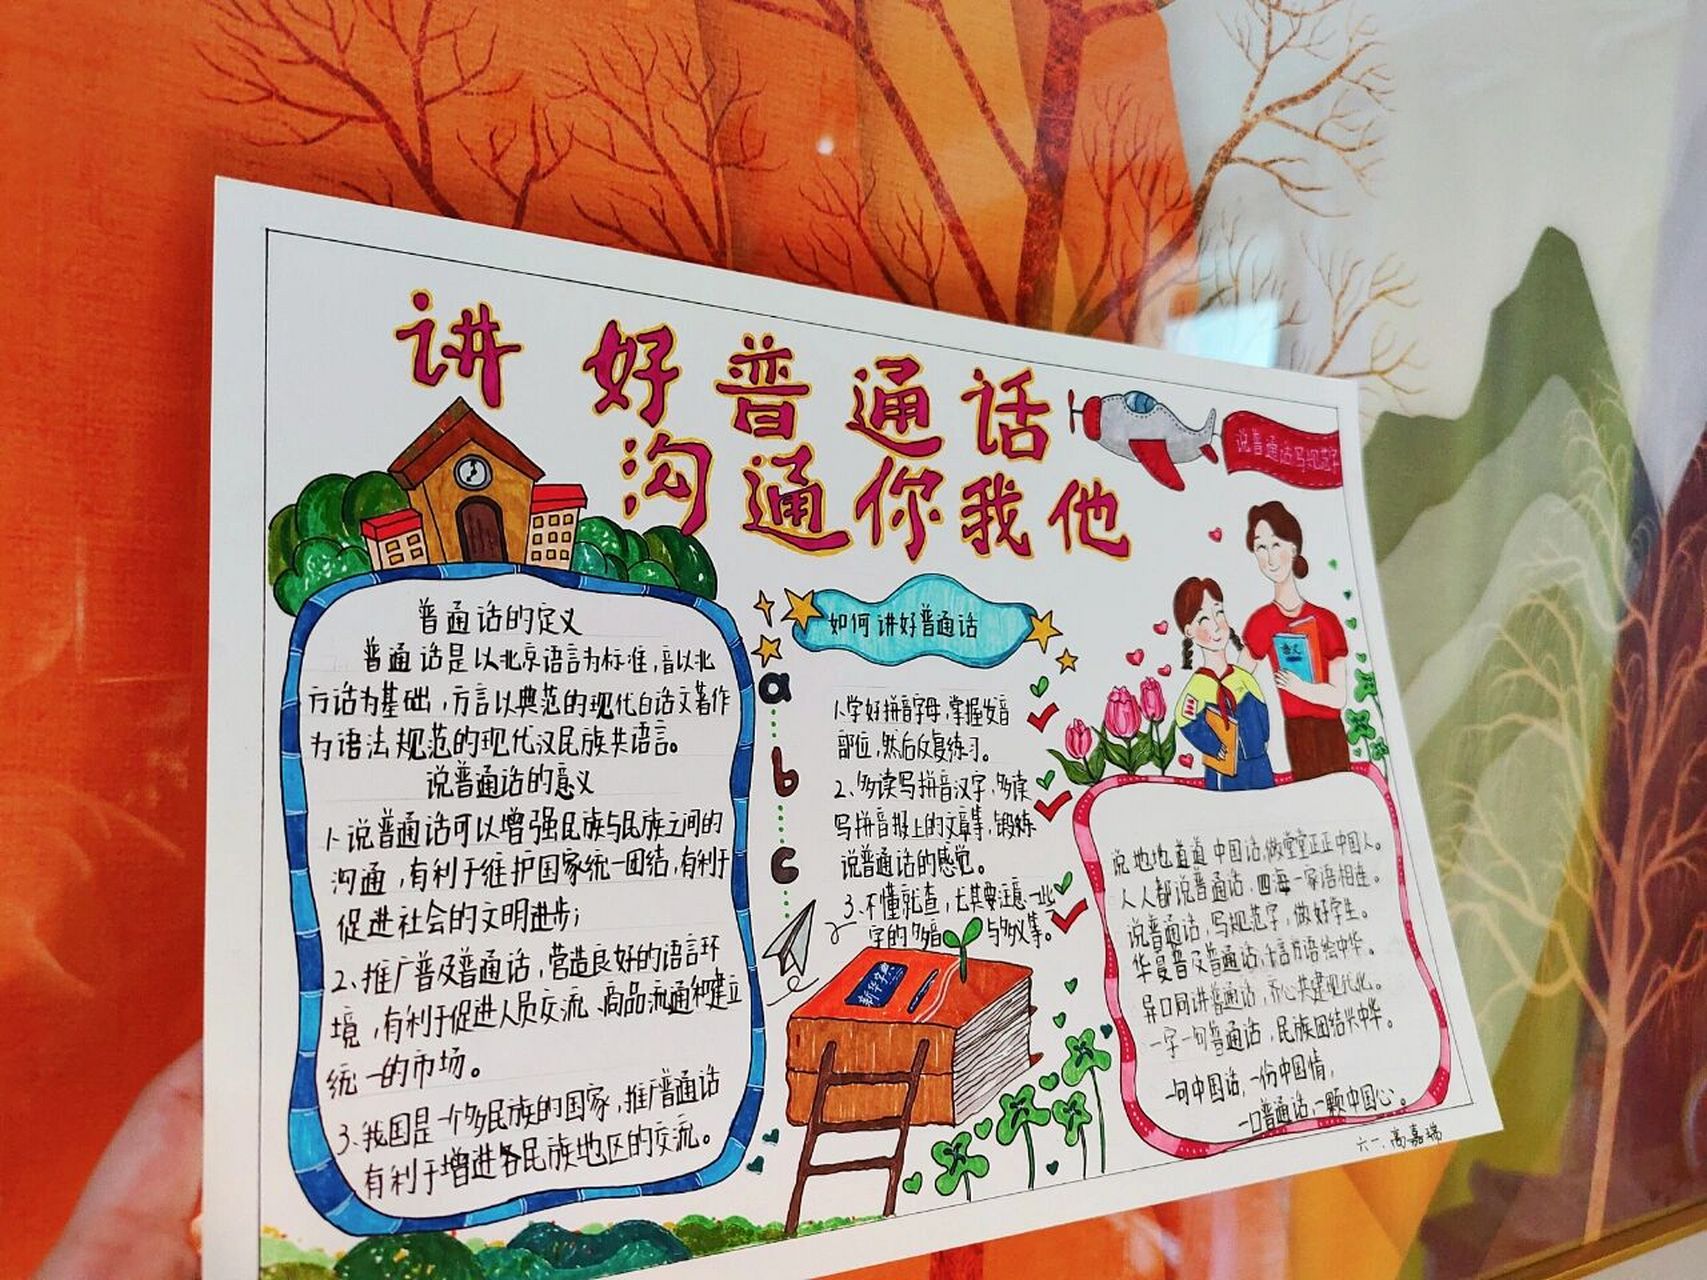 讲好普通话
沟通你我他
说普通话写规范字
普通话的定义
普通话是以北京语言为标准,音以北
方话为基础,方言以典范的现代白话文著作
为语法规范的现代汉民族共语言。
说普通话的意义
1、说普通话可以增强民族与民族之间的
沟通,有利于维护国家统一团结,有利于
促进社会的文明进步;
2、推广普及普通话,营造良好的语言环
境,有利于促进人员交流、商品流通和建立
统一的市场。
3、我国是一个多民族的国家,推广普通话
有利于增进各民族地区的交流。
a
b
c
如何讲好普通话
1、学好拼音字母,掌握发音
部位,然后反复练习。
2、多读写拼音汉字,多读
写拼音报上的文章等,锻炼
说普通话的感觉。
3、不懂就查,尤其要注意一些
字的多音与多义等。
新华字典
语文
说地地道道中国话,做堂堂正正中国人。
人人都说普通话,四海一家语相连。
说普通话,写规范字,做好学生。
华夏普及普通话,千言万语绘中华。
异口同讲普通话,齐心共建现代化。
一字一句普通话,民族团结兴中华。
一句中国话,一份中国情,
一口普通话,一颗中国心。
六一.高嘉瑞